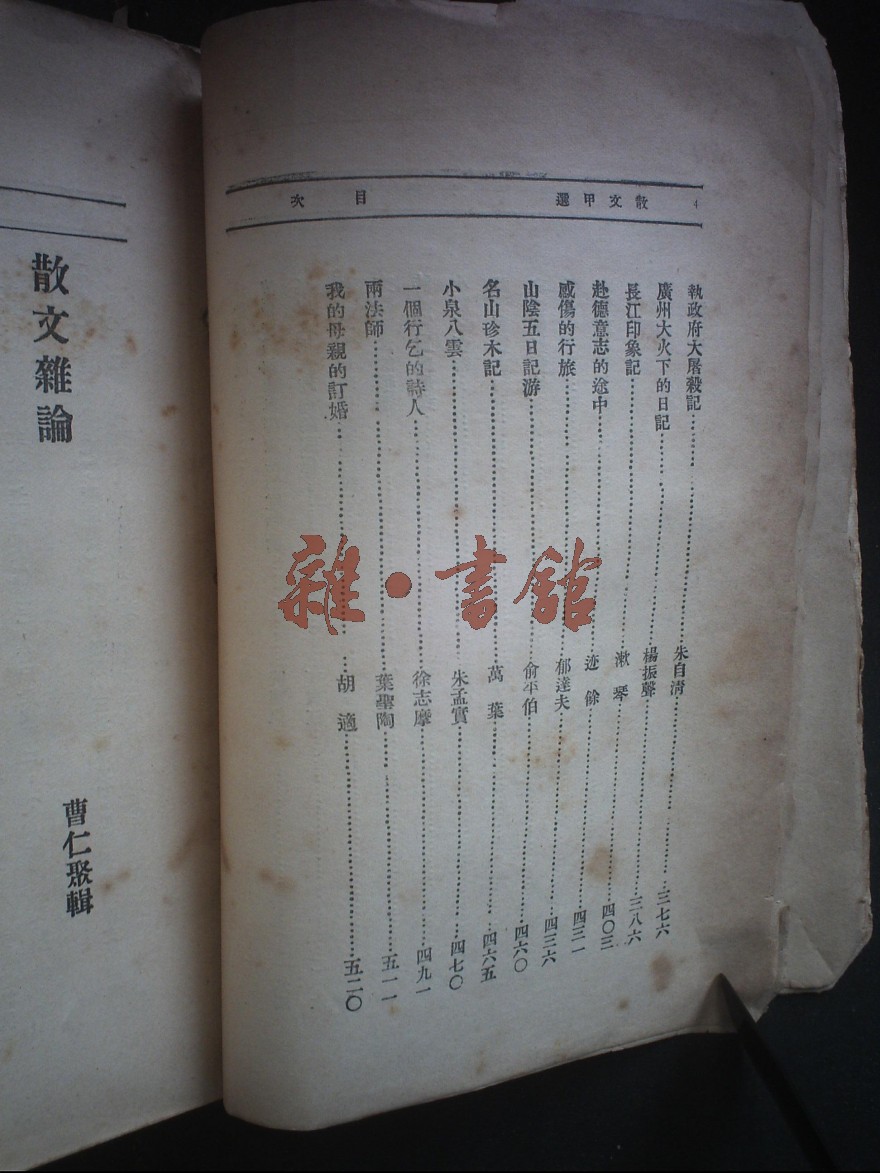 4 散文甲選 目次
執政府大屠殺記 朱自清 三七六
廣州大火下的日記 楊振聲 三八六
長江印象記 漱琴 四〇三
赴德意志的途中 迹餘 四三一
感傷的行旅 郁達夫 四三六
山陰五日記游 俞平伯 四六〇
名山珍木記 萬葉 四六五
小泉八雲 朱孟實 四七〇
一個行乞的詩人 徐志摩 四九一
兩法師 葉聖陶 五一一
我的母親的訂婚 胡適 五二〇
散文雜論
曹仁聚輯
雜·書館